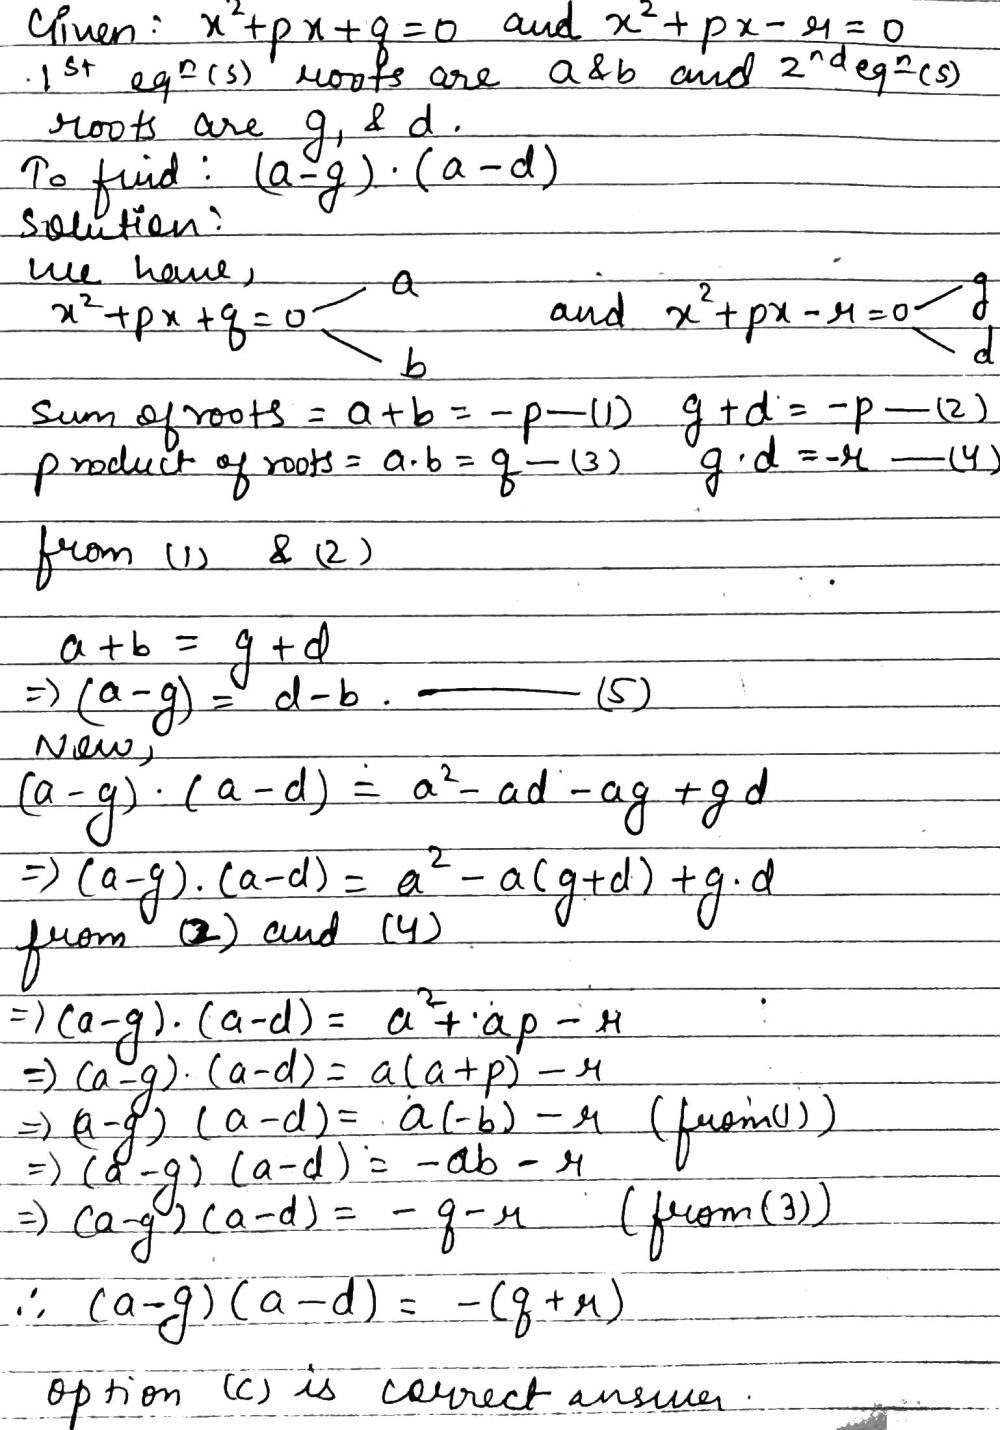 Given: x²+px+q=0 and x²+px-r=0
1st eqn(s) roots are a&b and 2nd eqn(s)
roots are g, & d.
To find: (a-g)·(a-d)
Solution:
we have,
a g
x²+px+q=0 and x²+px-r=0
b d
Sum of roots = a+b = -p—(1) g+d = -p—(2)
product of roots = a·b = q—(3) g·d = -r—(4)
from (1) & (2)
a+b = g+d
=> (a-g) = d-b. —(5)
Now,
(a-g)·(a-d) = a²-ad-ag+gd
=> (a-g)·(a-d) = a²-a(g+d)+g·d
from (2) and (4)
=> (a-g)·(a-d) = a²+ap-r
=> (a-g)·(a-d) = a(a+p)-r
=> (a-g) (a-d) = a(-b)-r (from(1))
=> (a-g) (a-d) = -ab-r
=> (a-g) (a-d) = -q-r (from(3))
∴ (a-g)(a-d) = -(q+r)
option (c) is correct answer.